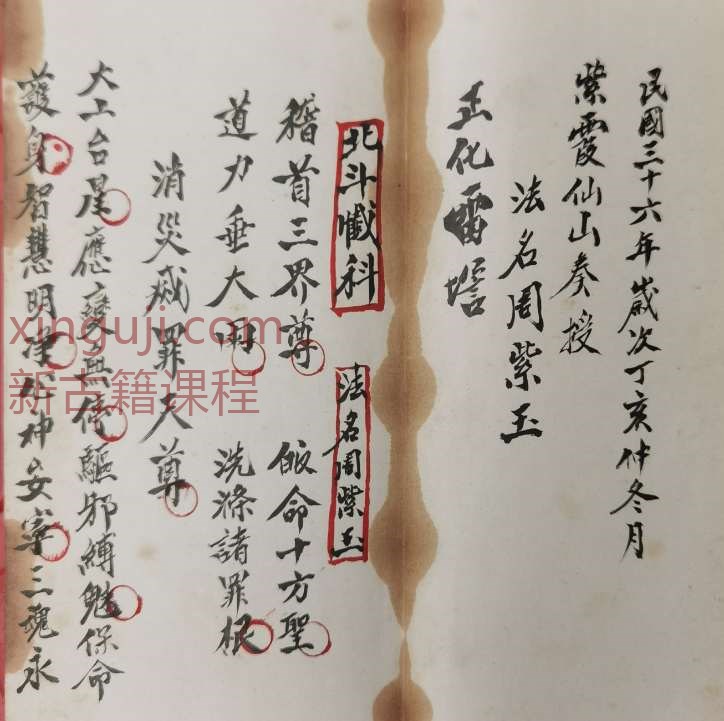 民國三十六年歲次丁亥仲冬月
紫霞仙山奏授
法名周紫玉
正化雷壇
北斗懺科
法名周紫玉
稽首三界尊 皈命十方聖
道力垂大用 洗滌諸罪根
消災滅罪天尊
大上台星應變無停驅邪縛魅保命
護身智慧明淨心神安寧三魂永
xinguji.com
新古籍课程